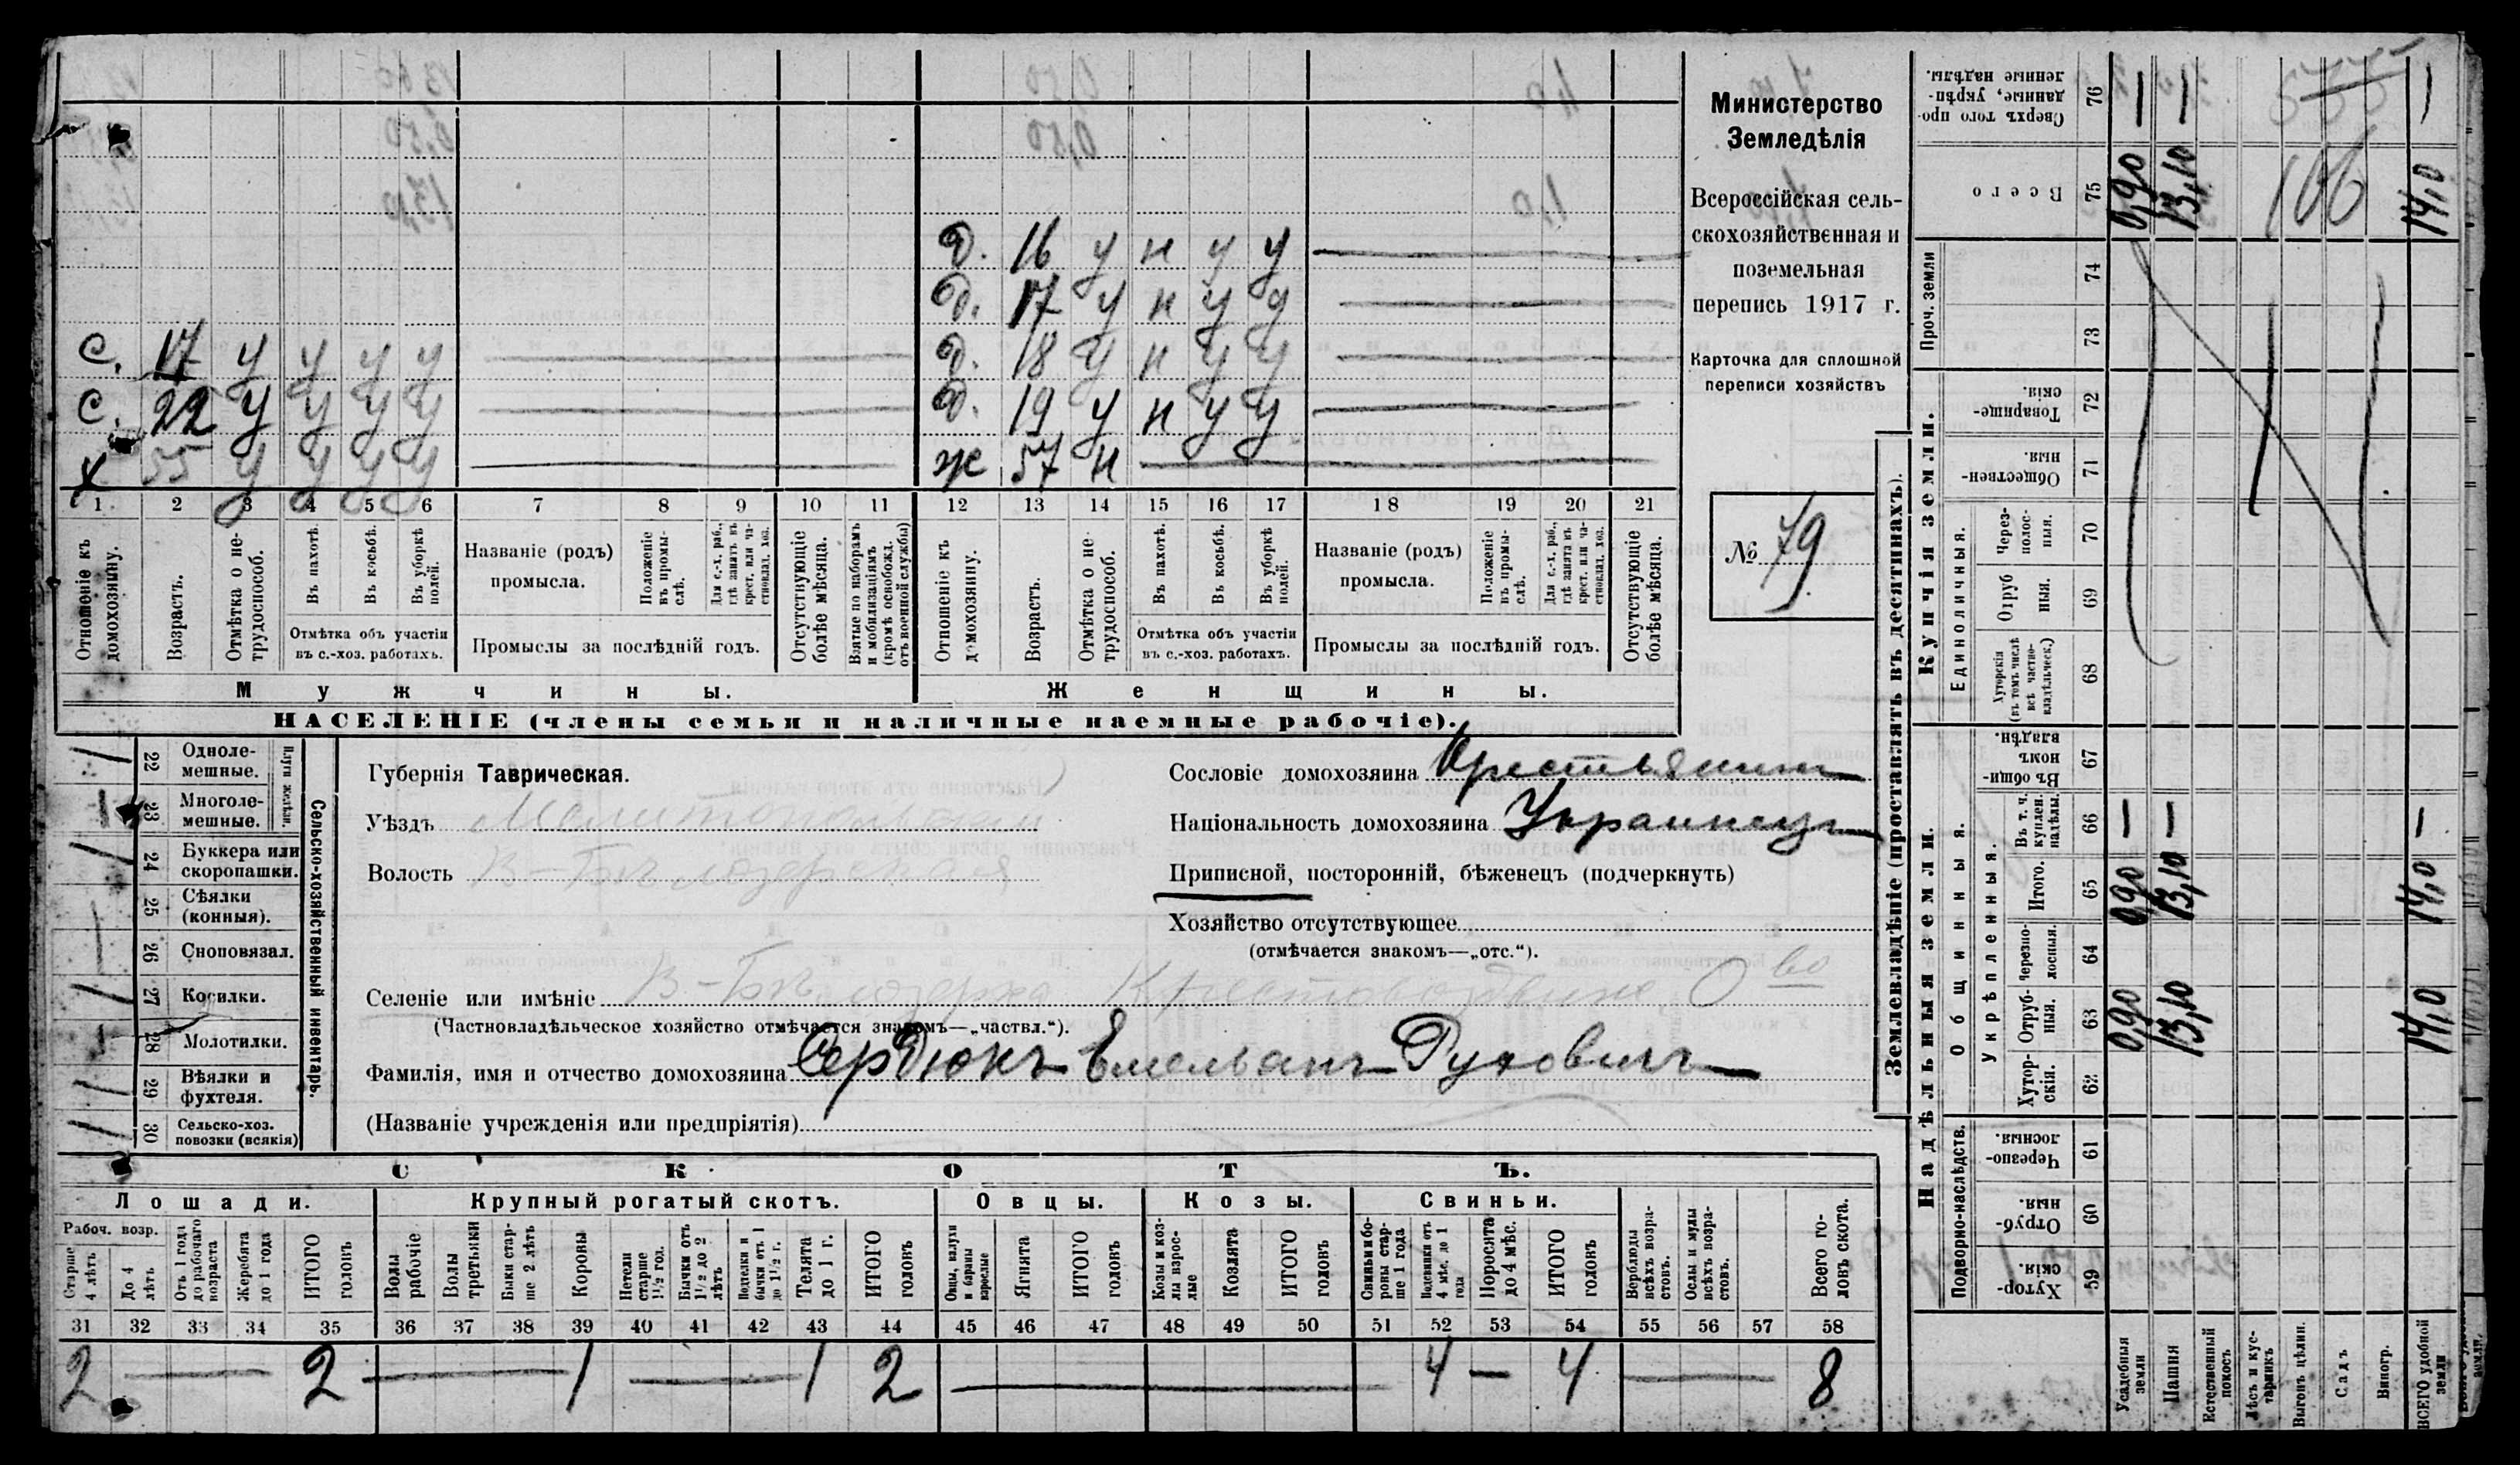 Министерство
Земледѣлія
Всероссійская сель-
скохозяйственная и
поземельная
перепись 1917 г.
Карточка для сплошной
переписи хозяйствъ
№ 79
д. 16 у н у у
д. 17 у н у у
с. 17 у у у у
д. 18 у н у у
с. 22 у у у у
д. 19 у н у у
х 55 у у у у
ж 57 н
1 2 3 4 5 6 7 8 9 10 11 12 13 14 15 16 17 18 19 20 21
Отношеніе къ домохозяину.
Возрастъ.
Отмѣтка о не-трудоспособ.
Въ пахотѣ.
Въ косьбѣ.
Въ уборкѣ полей.
Отмѣтка объ участіи
въ с.-хоз. работахъ.
Названіе (родъ)
промысла.
Положеніе въ промы-слѣ.
Для с.-х. раб., гдѣ занятъ въ крест. или ча-стновлад. хоз.
Промыслы за послѣдній годъ.
Отсутствующіе болѣе мѣсяца.
Взятые по наборамъ и мобилизаціямъ (кромѣ освобожд. отъ военной службы)
Отношеніе къ домохозяину.
Возрастъ.
Отмѣтка о не-трудоспособ.
Въ пахотѣ.
Въ косьбѣ.
Въ уборкѣ полей.
Отмѣтка объ участіи
въ с.-хоз. работахъ.
Названіе (родъ)
промысла.
Положеніе въ промы-слѣ.
Для с.-х. раб., гдѣ занята въ крест. или ча-стновлад. хоз.
Промыслы за послѣдній годъ.
Отсутствующіе болѣе мѣсяца.
Мужчины.
Женщины.
НАСЕЛЕНІЕ (члены семьи и наличные наемные рабочіе).
Сельско-хозяйственный инвентарь.
Плуги желѣзн.
22 Одноле-мешные.
23 Многоле-мешные.
24 Буккера или скоропашки.
25 Сѣялки (конныя).
26 Сноповязал.
27 Косилки.
28 Молотилки.
29 Вѣялки и фухтеля.
30 Сельско-хоз. повозки (всякія)
Губернія Таврическая.
Уѣздъ Мелитопольскій
Волость В-Бѣлозерская
Сословіе домохозяина Крестьянинъ
Національность домохозяина Украинецъ
Приписной, посторонній, бѣженецъ (подчеркнуть)
Хозяйство отсутствующее
(отмѣчается знакомъ—„отс.“).
Селеніе или имѣніе В-Бѣлозерка Крестовоздвиже О во
(Частновладѣльческое хозяйство отмѣчается знакомъ—„частвл.“).
Фамилія, имя и отчество домохозяина Сердюкъ Емельянъ
(Названіе учрежденія или предпріятія)
СКОТЪ.
Лошади.
Крупный рогатый скотъ.
Овцы.
Козы.
Свиньи.
Рабоч. возр.
Старше 4 лѣтъ
До 4 лѣтъ
Отъ 1 года до рабочаго возраста
Жеребята до 1 года
ИТОГО головъ
Волы рабочіе
Волы третьяки
Быки стар-ше 2 лѣтъ
Коровы
Нетели старше 1½ год.
Бычки отъ 1½ до 2 лѣтъ
Подтелки и бычки отъ 1 до 1½ г.
Телята до 1 г.
ИТОГО головъ
Овцы, валухи и бараны взрослые
Ягнята
ИТОГО головъ
Козы и коз-лы взрос-лые
Козлята
ИТОГО головъ
Свиньи и бо-ровы стар-ше 1 года
Подсвинки отъ 4 мѣс. до 1 года
Поросята до 4 мѣс.
ИТОГО головъ
Верблюды всѣхъ возра-стовъ.
Ослы и мулы всѣхъ возра-стовъ.
Всего го-ловъ скота.
31 32 33 34 35 36 37 38 39 40 41 42 43 44 45 46 47 48 49 50 51 52 53 54 55 56 57 58
2 — 2 — 1 — 1 2 — 4 — 4 — 8
Землевладѣніе (проставлять въ десятинахъ).
Надѣльныя земли.
Купчія земли.
Проч. земли
Подворно-наслѣдств.
Общинныя.
Укрѣпленныя.
Единоличныя.
Хутор-скія. 59
Отруб-ныя. 60
Черезпо-лосныя. 61
Хутор-скія. 62
Отруб-ныя. 63
Черезпо-лосныя. 64
Итого. 65
Въ т. ч. куплен. надѣлы. 66
Въ общи-номъ владѣн. 67
Хуторскія (въ томъ числѣ всѣ частно-владѣльческ.) 68
Отруб ныя. 69
Через-полос-ныя. 70
Обществен-ныя. 71
Товарище-скія. 72
73
74
Всего 75
Сверхъ того про-данные, укрѣп-ленные надѣлы. 76
Усадебныя земли 0,90 0,90 — 0,90 —
Пашня 13,10 13,10 — 13,10 —
Естественный покосъ
Лѣсъ и кус-тарникъ
Выгонъ цѣлин.
Садъ
Виногр.
ВСЕГО удобной земли 14,0 14,0 — 14,0 —
106